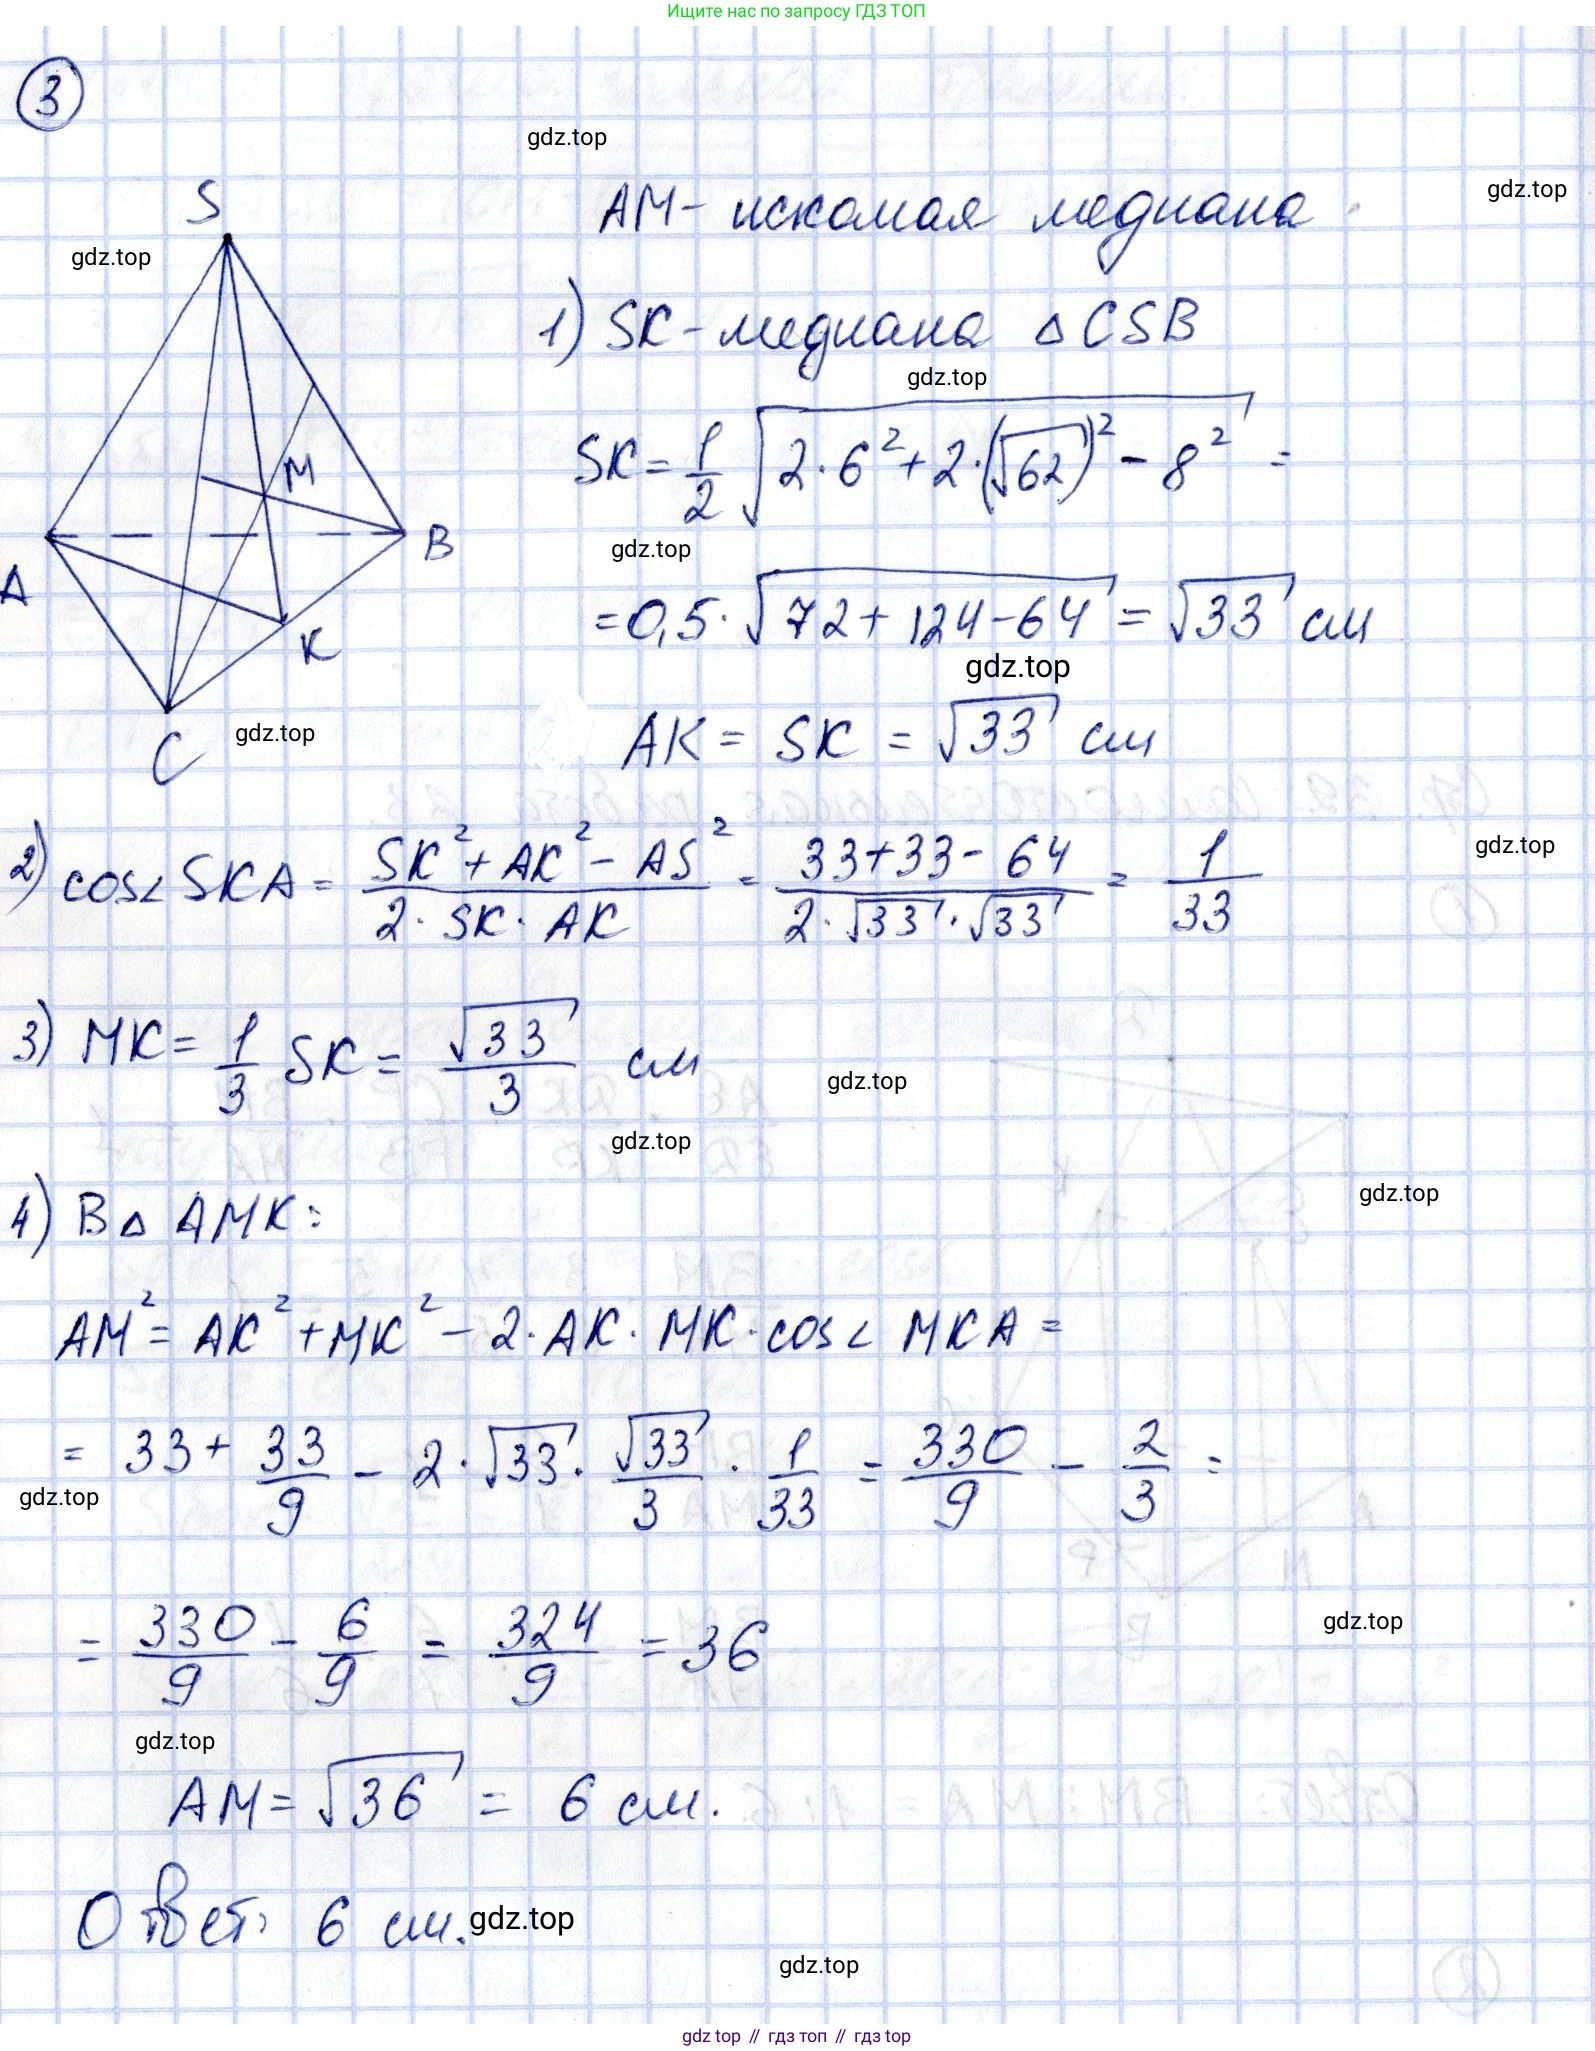 Ищите нас по запросу ГДЗ ТОП
3
gdz.top
S
AM - искомая медиана
gdz.top
gdz.top
1) SK - медиана △ CSB
gdz.top
SK = 1/2 √(2·6² + 2·(√62)² - 8²) =
M
A
B
gdz.top
= 0,5·√(72 + 124 - 64) = √33 см
K
gdz.top
C
gdz.top
AK = SK = √33 см
2) cos∠SKA = (SK² + AK² - AS²)/(2·SK·AK) = (33 + 33 - 64)/(2·√33·√33) = 1/33
gdz.top
3) MK = 1/3 SK = √33/3 см
gdz.top
gdz.top
4) В △ AMK:
gdz.top
AM² = AK² + MK² - 2·AK·MK·cos∠MKA =
= 33 + 33/9 - 2·√33·√33/3·1/33 = 330/9 - 2/3 =
gdz.top
= 330/9 - 6/9 = 324/9 = 36
gdz.top
gdz.top
AM = √36 = 6 см.
Ответ: 6 см.
gdz.top
gdz.top
gdz.top // гдз топ // гдз top